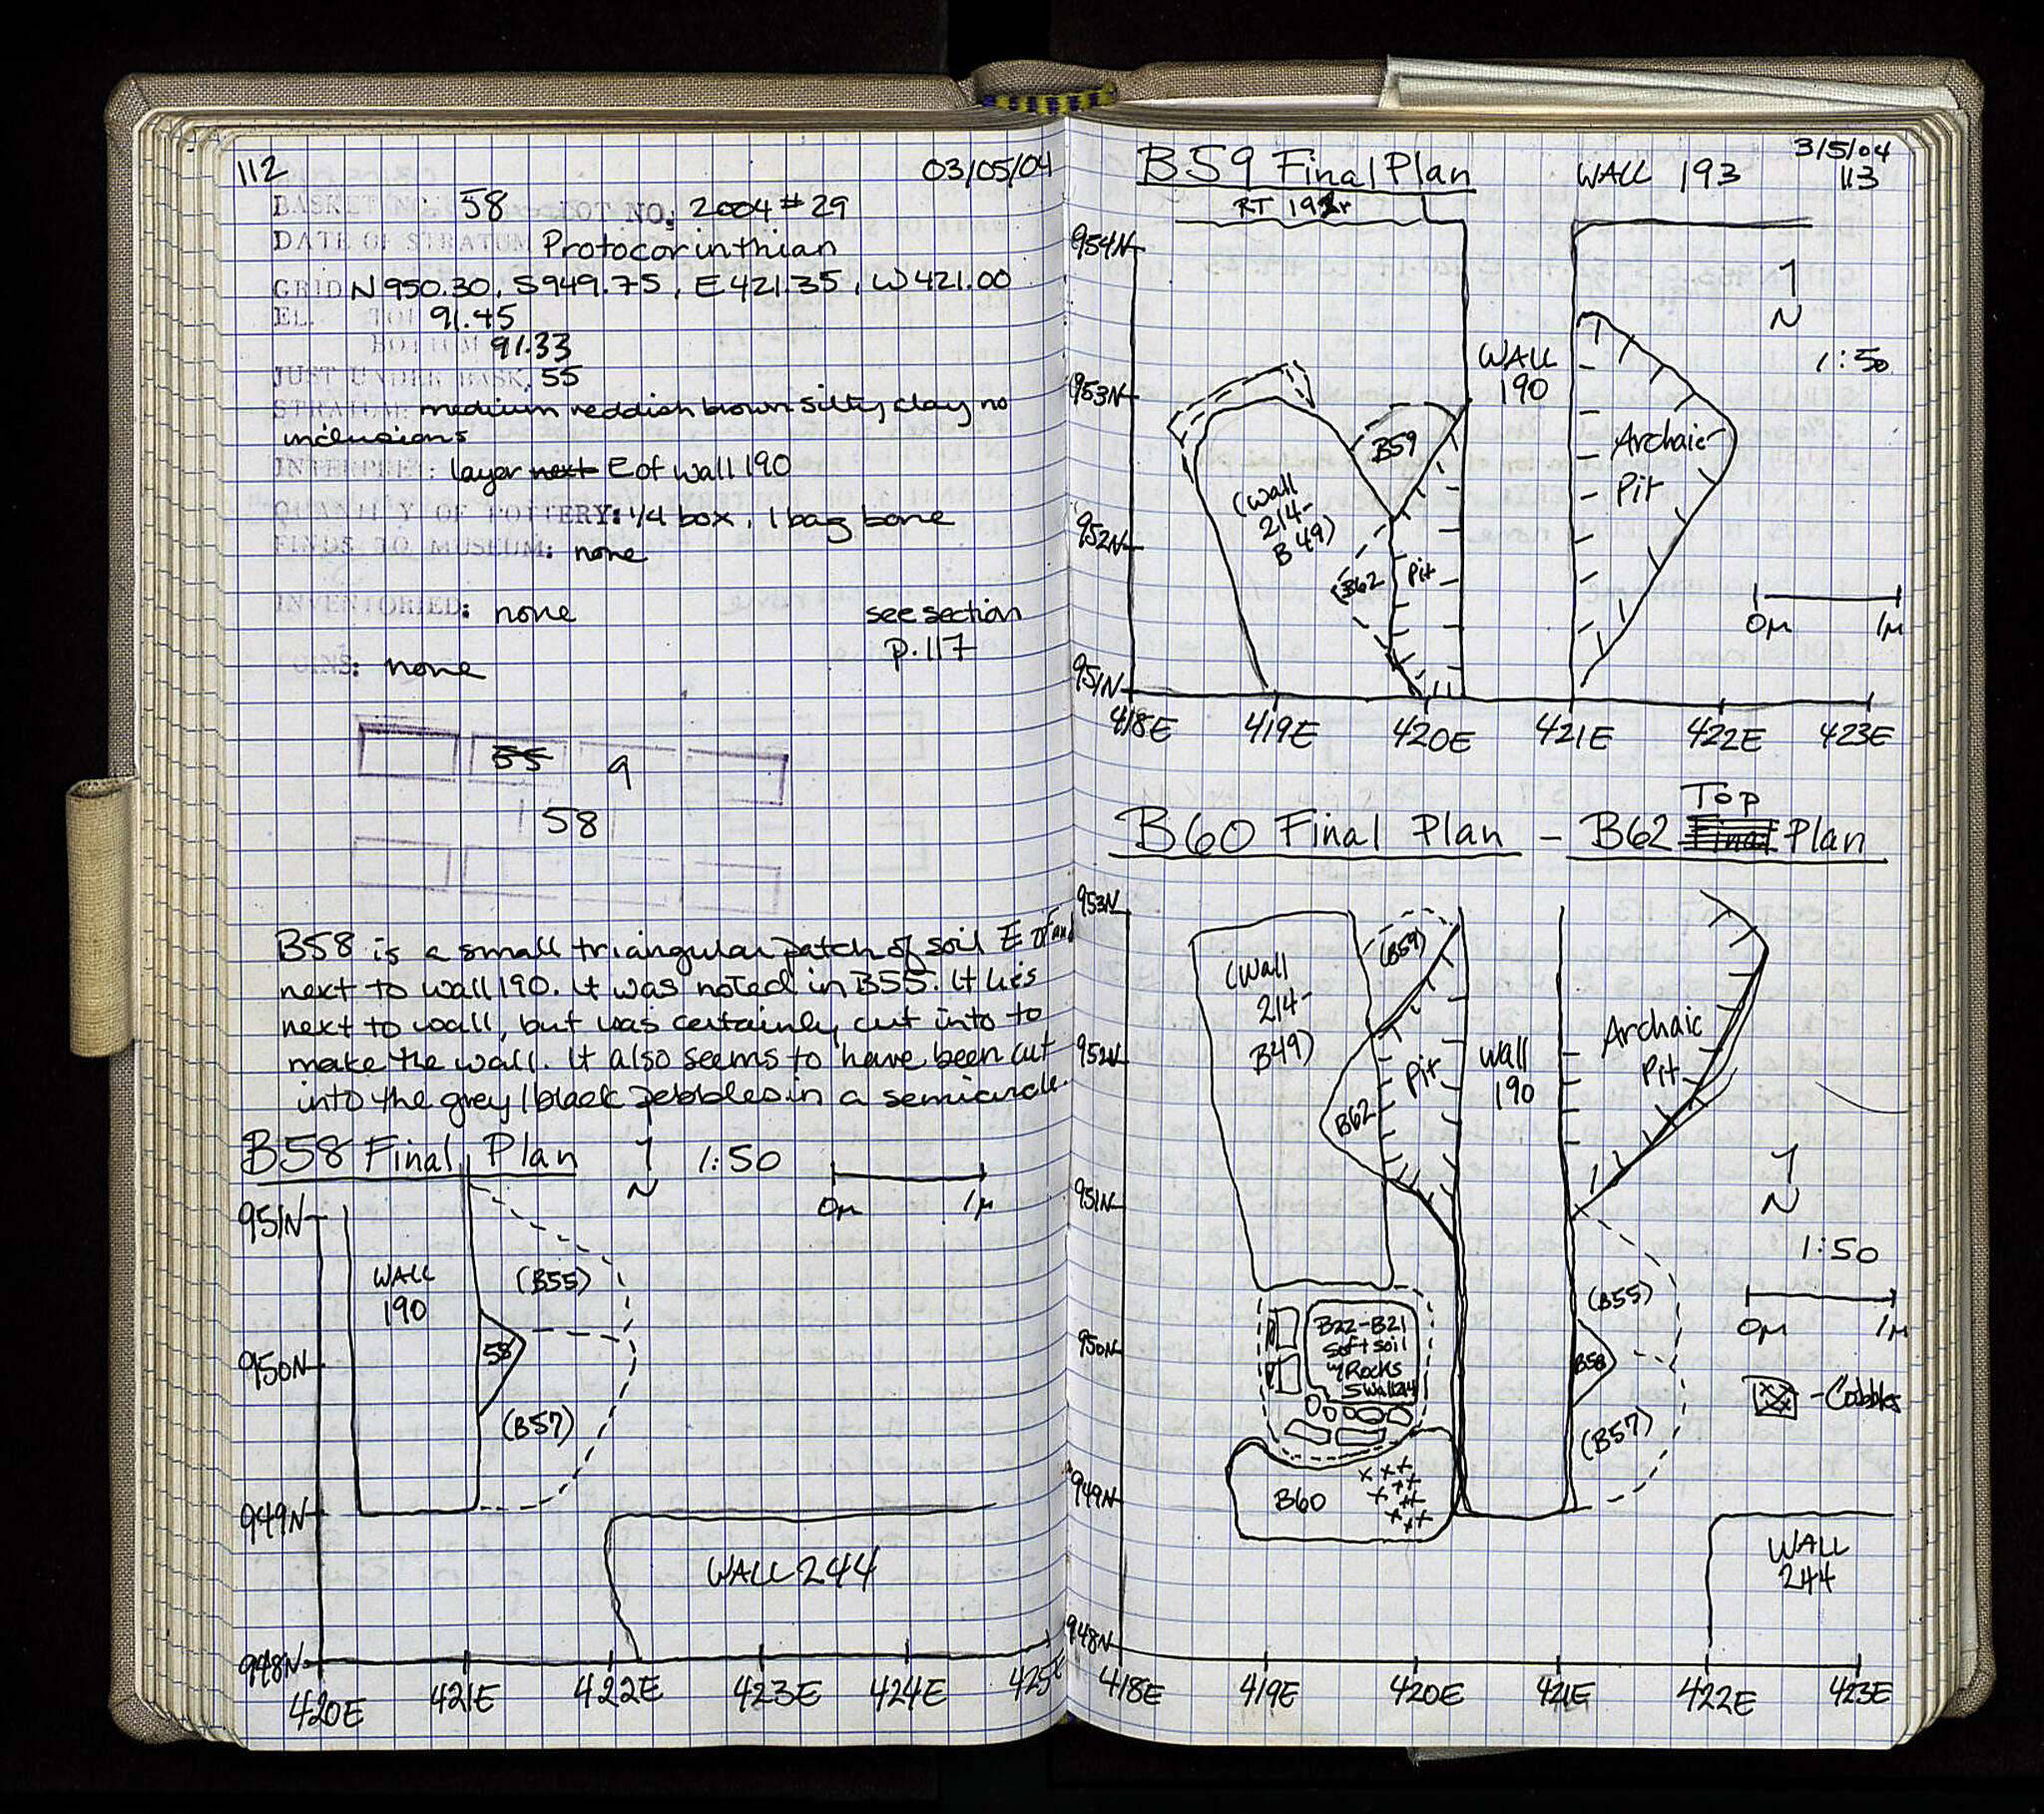 112
03/05/04
BASKET NO. 58 LOT NO: 2004 #29
DATE OF STRATUM Protocorinthian
GRID N 950.30, S 949.75, E 421.35, W 421.00
EL. TOP 91.45
BOTTOM 91.33
JUST UNDER BASK. 55
STRATUM: medium reddish brown silty clay no
inclusions
INTERPRET: layer next E of wall 190
QUANTITY OF POTTERY: 1/4 box, 1 bag bone
FINDS TO MUSEUM: none
INVENTORIED: none
see section
p. 117
COINS: none
55 9
58
B58 is a small triangular patch of soil E of and
next to wall 190. It was noted in B55. It lies
next to wall, but was certainly cut into to
make the wall. It also seems to have been cut
into the grey/black pebbles in a semicircle.
B58 Final Plan
N
1:50
0M 1M
951N
950N
949N
948N
WALL
190
(B55)
58
(B57)
WALL 244
420E 421E 422E 423E 424E 425E
3/5/04
113
B59 Final Plan
WALL 193
954N
953N
952N
951N
N
1:50
WALL
190
Archaic
Pit
B59
(Wall
214-
B49)
(B62
Pit
0M 1M
418E 419E 420E 421E 422E 423E
B60 Final Plan - B62 Top Plan
953N
952N
951N
950N
949N
948N
(Wall
214-
B49)
(B59)
Pit
B62
Wall
190
Archaic
Pit
N
1:50
0M 1M
(B55)
B58
(B57)
B22-B21
Soft soil
w/ Rocks
S Wall 214
B60
- Cobbles
WALL
244
418E 419E 420E 421E 422E 423E